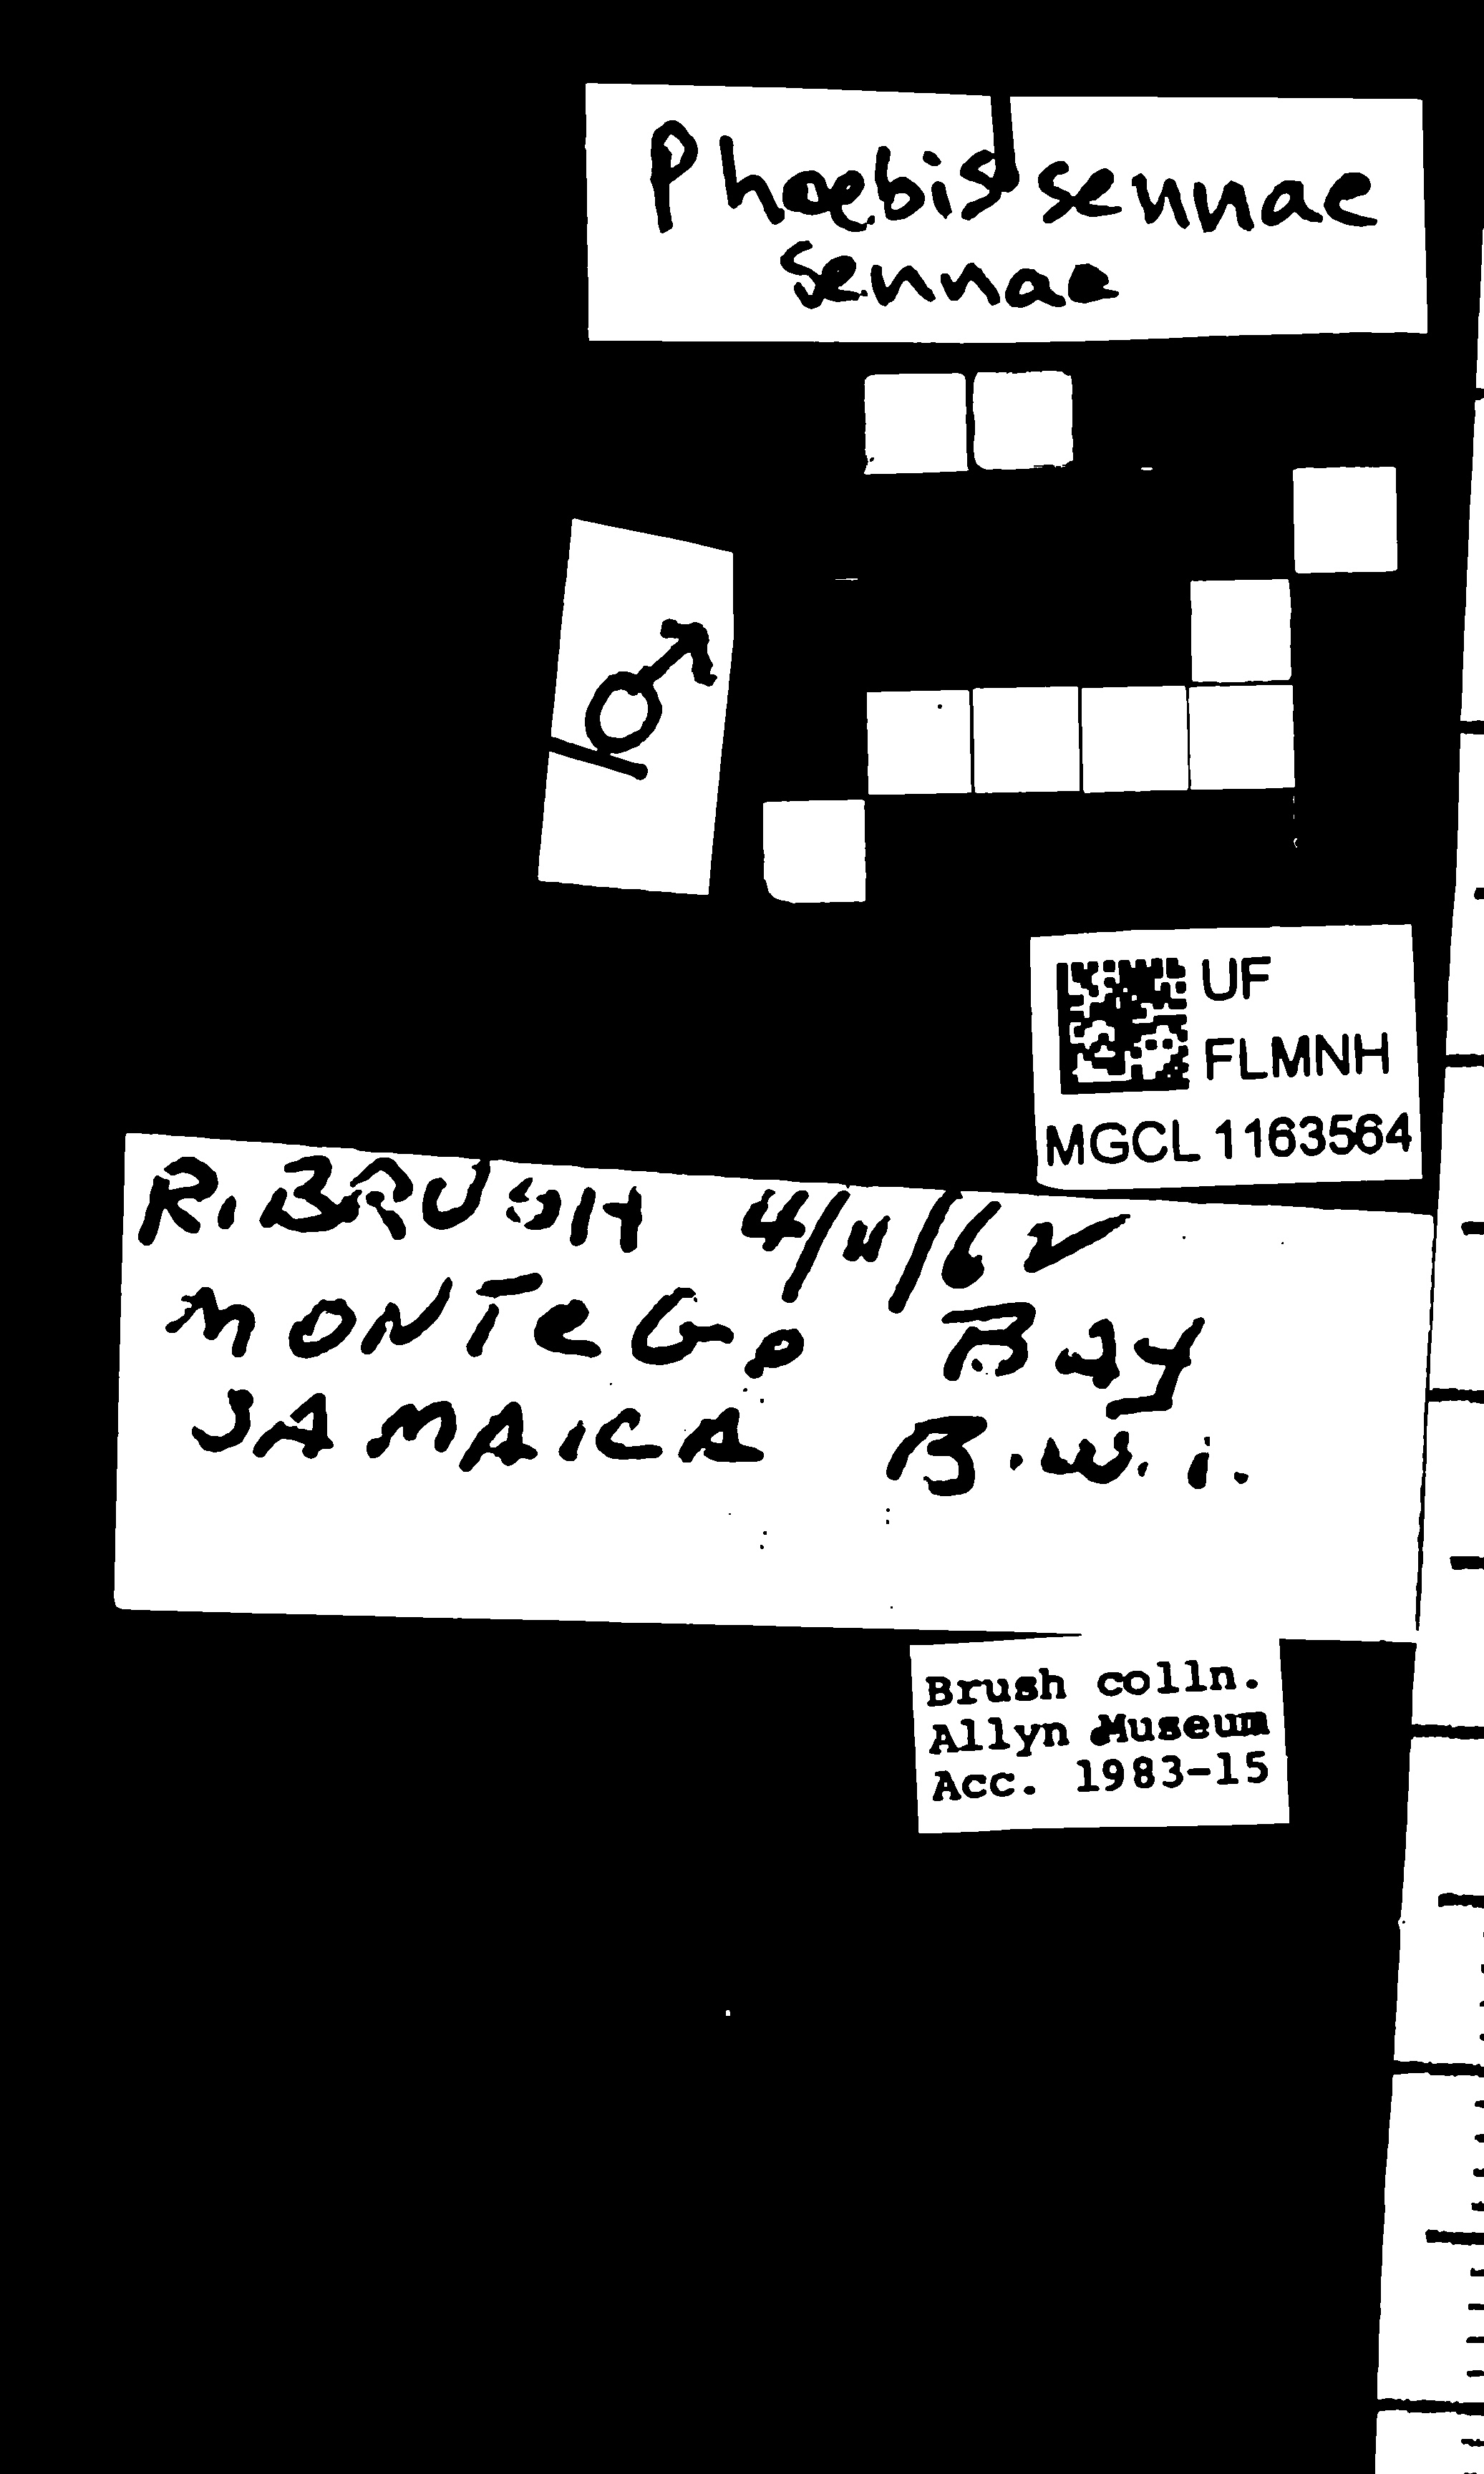 Phoebis sennae
sennae
♂
UF
FLMNH
MGCL 1163564
R. BRUSH 4/11/62
MONTEGO BAY
JAMAICA B.W.I.
Brush colln.
Allyn Museum
Acc. 1983-15